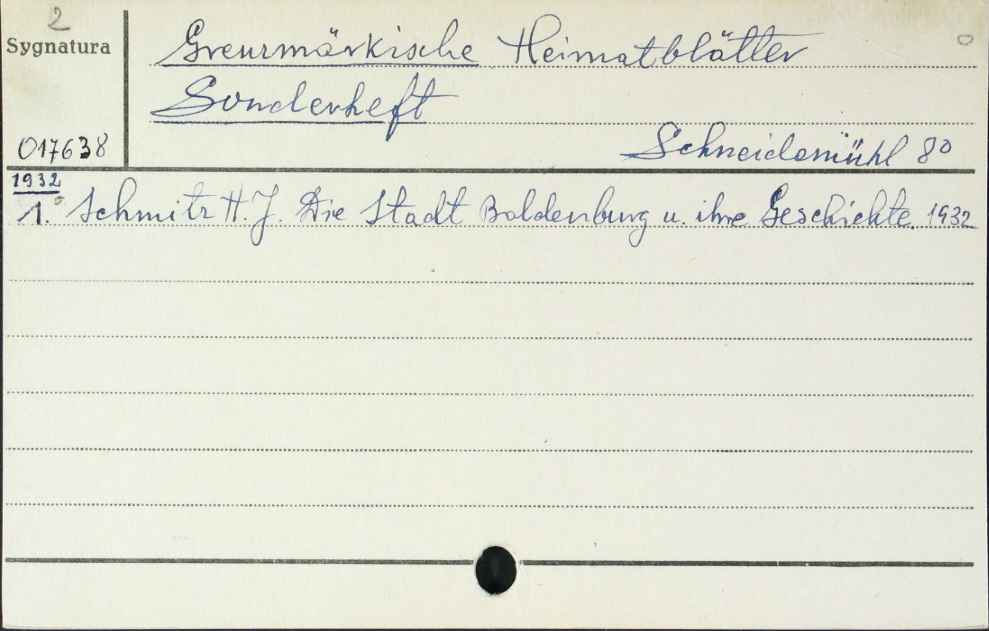 2
Sygnatura
Grenzmärkische Heimatblätter
Sonderheft
017638
Schneidemühl 80
1932
1. Schmitz H. J. Die Stadt Baldenburg u. ihre Geschichte. 1932